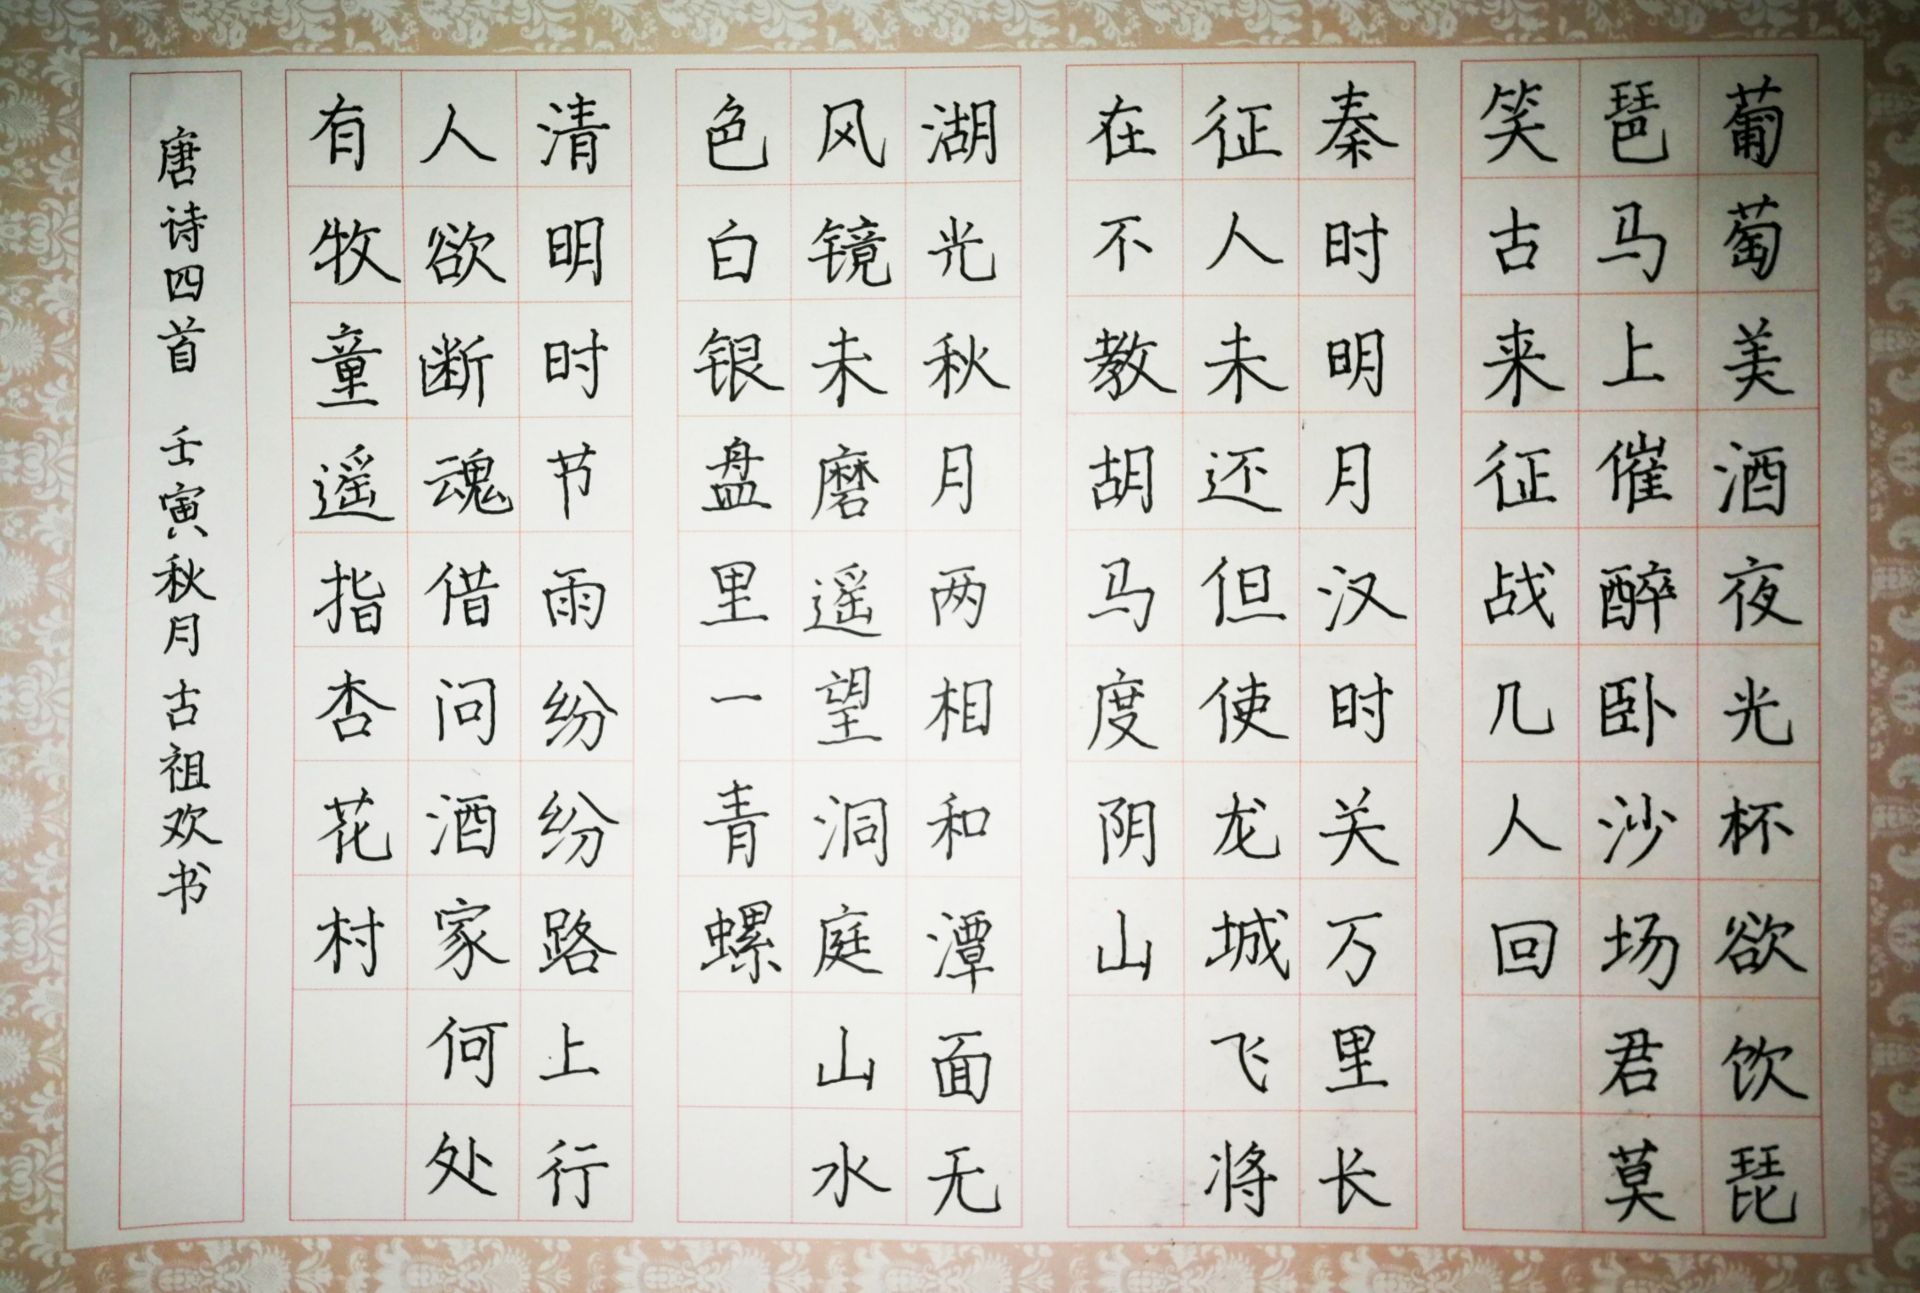 葡萄美酒夜光杯欲饮琵
琶马上催醉卧沙场君莫
笑古来征战几人回
秦时明月汉时关万里长
征人未还但使龙城飞将
在不教胡马度阴山
湖光秋月两相和潭面无
风镜未磨遥望洞庭山水
色白银盘里一青螺
清明时节雨纷纷路上行
人欲断魂借问酒家何处
有牧童遥指杏花村
唐诗四首 壬寅秋月古祖欢书